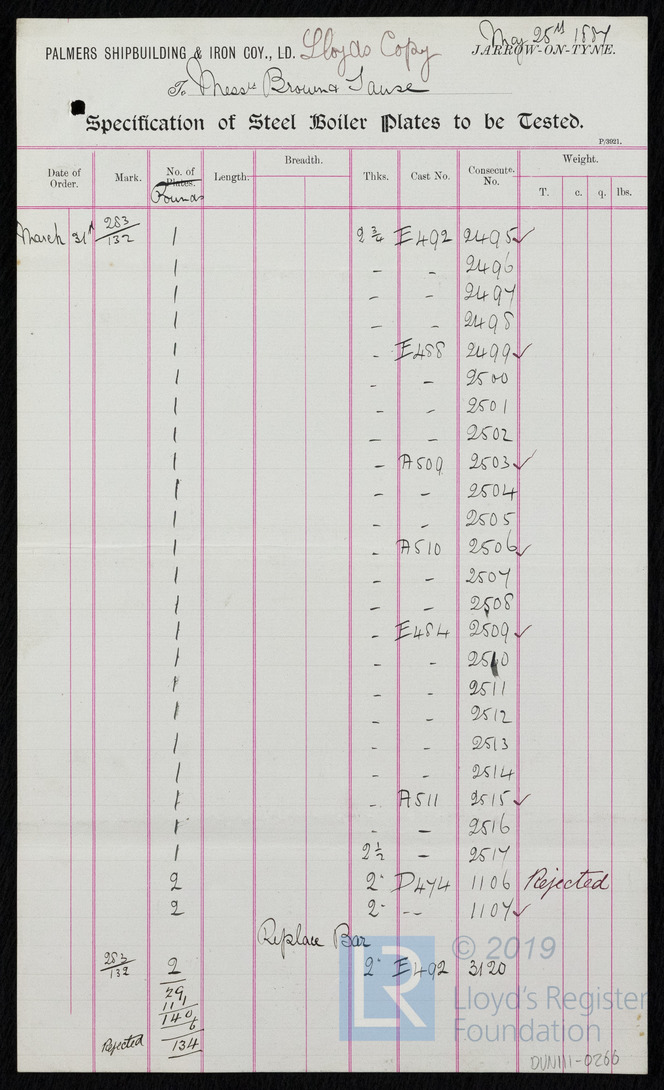 Lloyds Copy
May 25th 1887
PALMERS SHIPBUILDING & IRON COY., LD. JARROW-ON-TYNE.
To Messrs Brown &
Specification of Steel Boiler Plates to be Tested.
P/3921.
Date of Order. Mark. No. of Plates. Rounds Length. Breadth. Thks. Cast No. Consecute. No. Weight.
T. c. q. lbs.
March 31st 283/132 1 2 3/4 E492 2495 ✓
1 - - 2496
1 - - 2497
1 - - 2498
1 - E488 2499 ✓
1 - - 2500
1 - - 2501
1 - - 2502
1 - A509 2503 ✓
1 - - 2504
1 - - 2505
1 - A510 2506 ✓
1 - - 2507
1 - - 2508
1 - E484 2509 ✓
1 - - 2510
1 - - 2511
1 - - 2512
1 - - 2513
1 - - 2514
1 - A511 2515 ✓
1 - - 2516
1 2 1/2 - 2517
2 2" D474 1106 Rejected
2 2" -- 1107 ✓
Replace Bar
283/132 2 2" E492 3120
29
111
140
6
Rejected 134
LR
© 2019
Lloyd's Register
Foundation
DUN111-0266